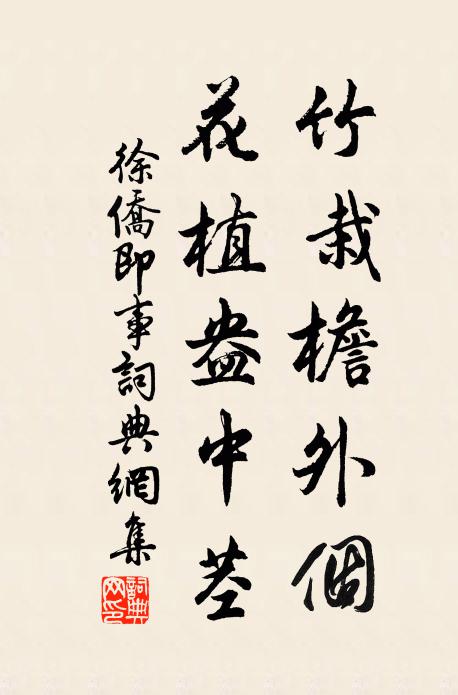 竹栽檐外個
花植盎中莖
徐僑即事詞典網集
詞典網印